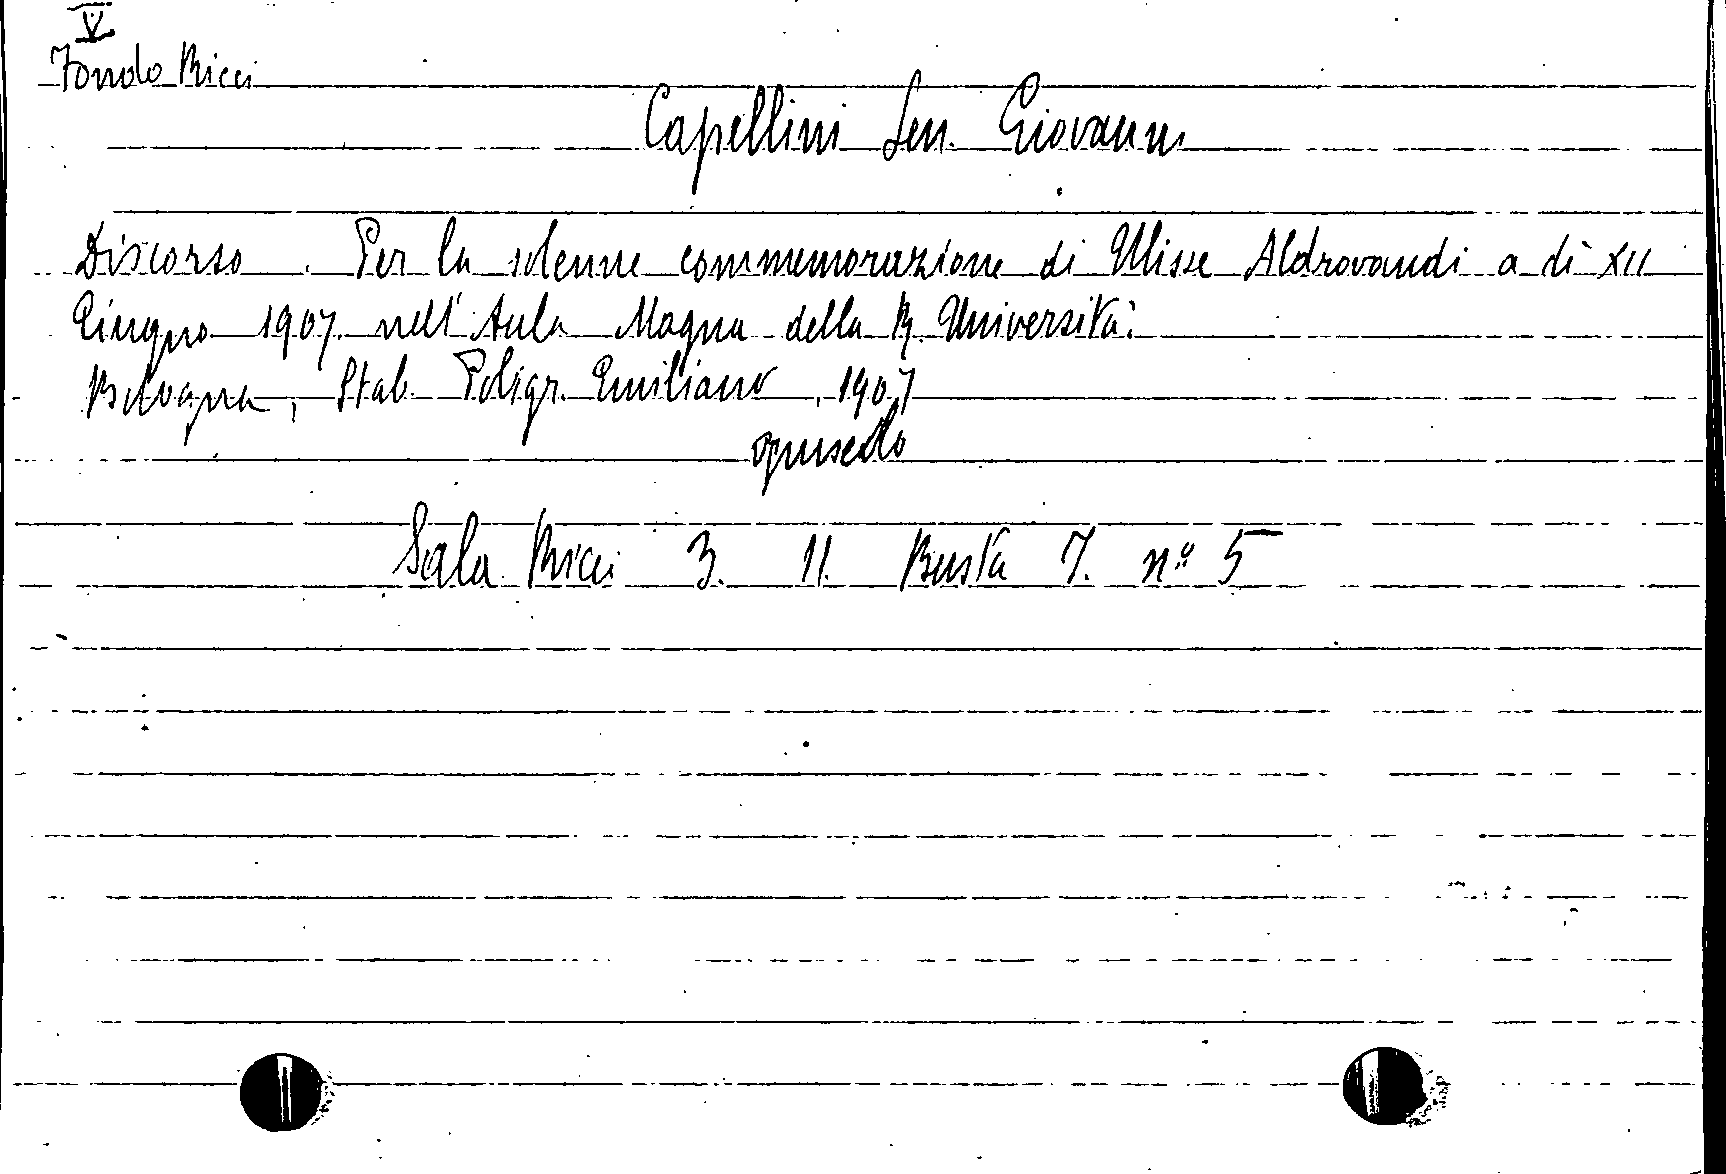 V
Fondo Ricci
Capellini Sen. Giovanni
Discorso. Per la solenne commemorazione di Ulisse Aldrovandi a dì XII
Giugno 1907. nell'Aula Magna della R. Università.
Bologna, Stab. Poligr. Emiliano, 1907
opuscolo
Sala Ricci 3. 11. Busta 7. nº 5